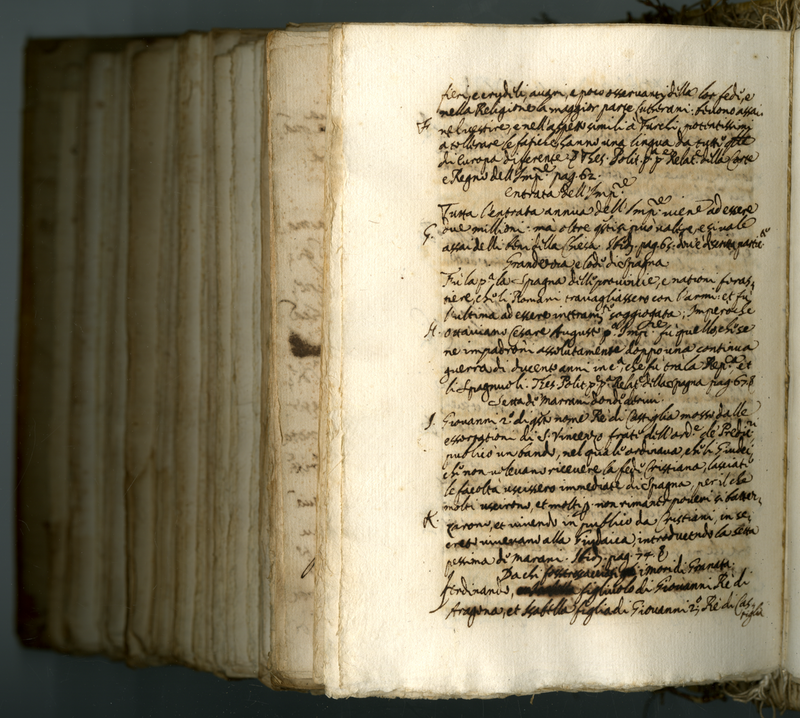 fieri, e crudeli, avari, e poco osservanti della lor fede, e
nella Religione la maggior parte Luterani. bevono assai
F. nel vestire, e nell'aspetto simili à Turchi, potentissimi
a tollerare le fatiche hanno una lingua da tutte
di Europa diferente. Thes. Polit. p.ª p.ª Relat.e della Corte
e Regno dell'Imp.re pag. 62.
Entrata dell'Imp.re
Tutta l'entrata annua dell'Imp.re viene ad essere
G. due millioni. ma oltre
assai delli beni della Chiesa. Ibid. pag. 65.
Grandezza, e lode di Spagna
Fù la p.ª la Spagna delle provincie, e nationi foras,
tiere, che li Romani travagliassero con l'armi. et fu
l'ultima ad essere soggiogata, Imperoche
H. Ottaviano Cesare Augusto p.º Imp.re fu quello, che se
ne impadronì assolutamente doppo una continua
guerra di ducento anni in c.ª, che fu tra la Rep.ca et
li Spagnuoli. Thes. Polit. p.ª p.ª Relat.e della Spagna pag. 678
Setta de Marrani donde derivi.
J. Giovanni 2.º di q.sto nome Re di Castiglia mosso dalle
essortationi di S. Vincenzo frate dell'ord.e de Pred.ri
publicò un bando, nel quale ordinava, che li Giudei
che non volevano ricevere la fede Cristiana, lasciate
le facoltà uscissero immediate di Spagna, per il che
molti uscirono, et molti p. non rimaner poveri si battez-
K. zarono, et vivendo in publico da Cristiani, in se,
creto vivevano alla Giudaica, introducendo la setta
pessima de marani. Ibid. pag. 74.
Da chi i mori di Granata.
Ferdinando, figliuolo di Giovanni Re di
Aragona, et Isabella figlia di Giovanni 2.º Re di Cas,
tiglia